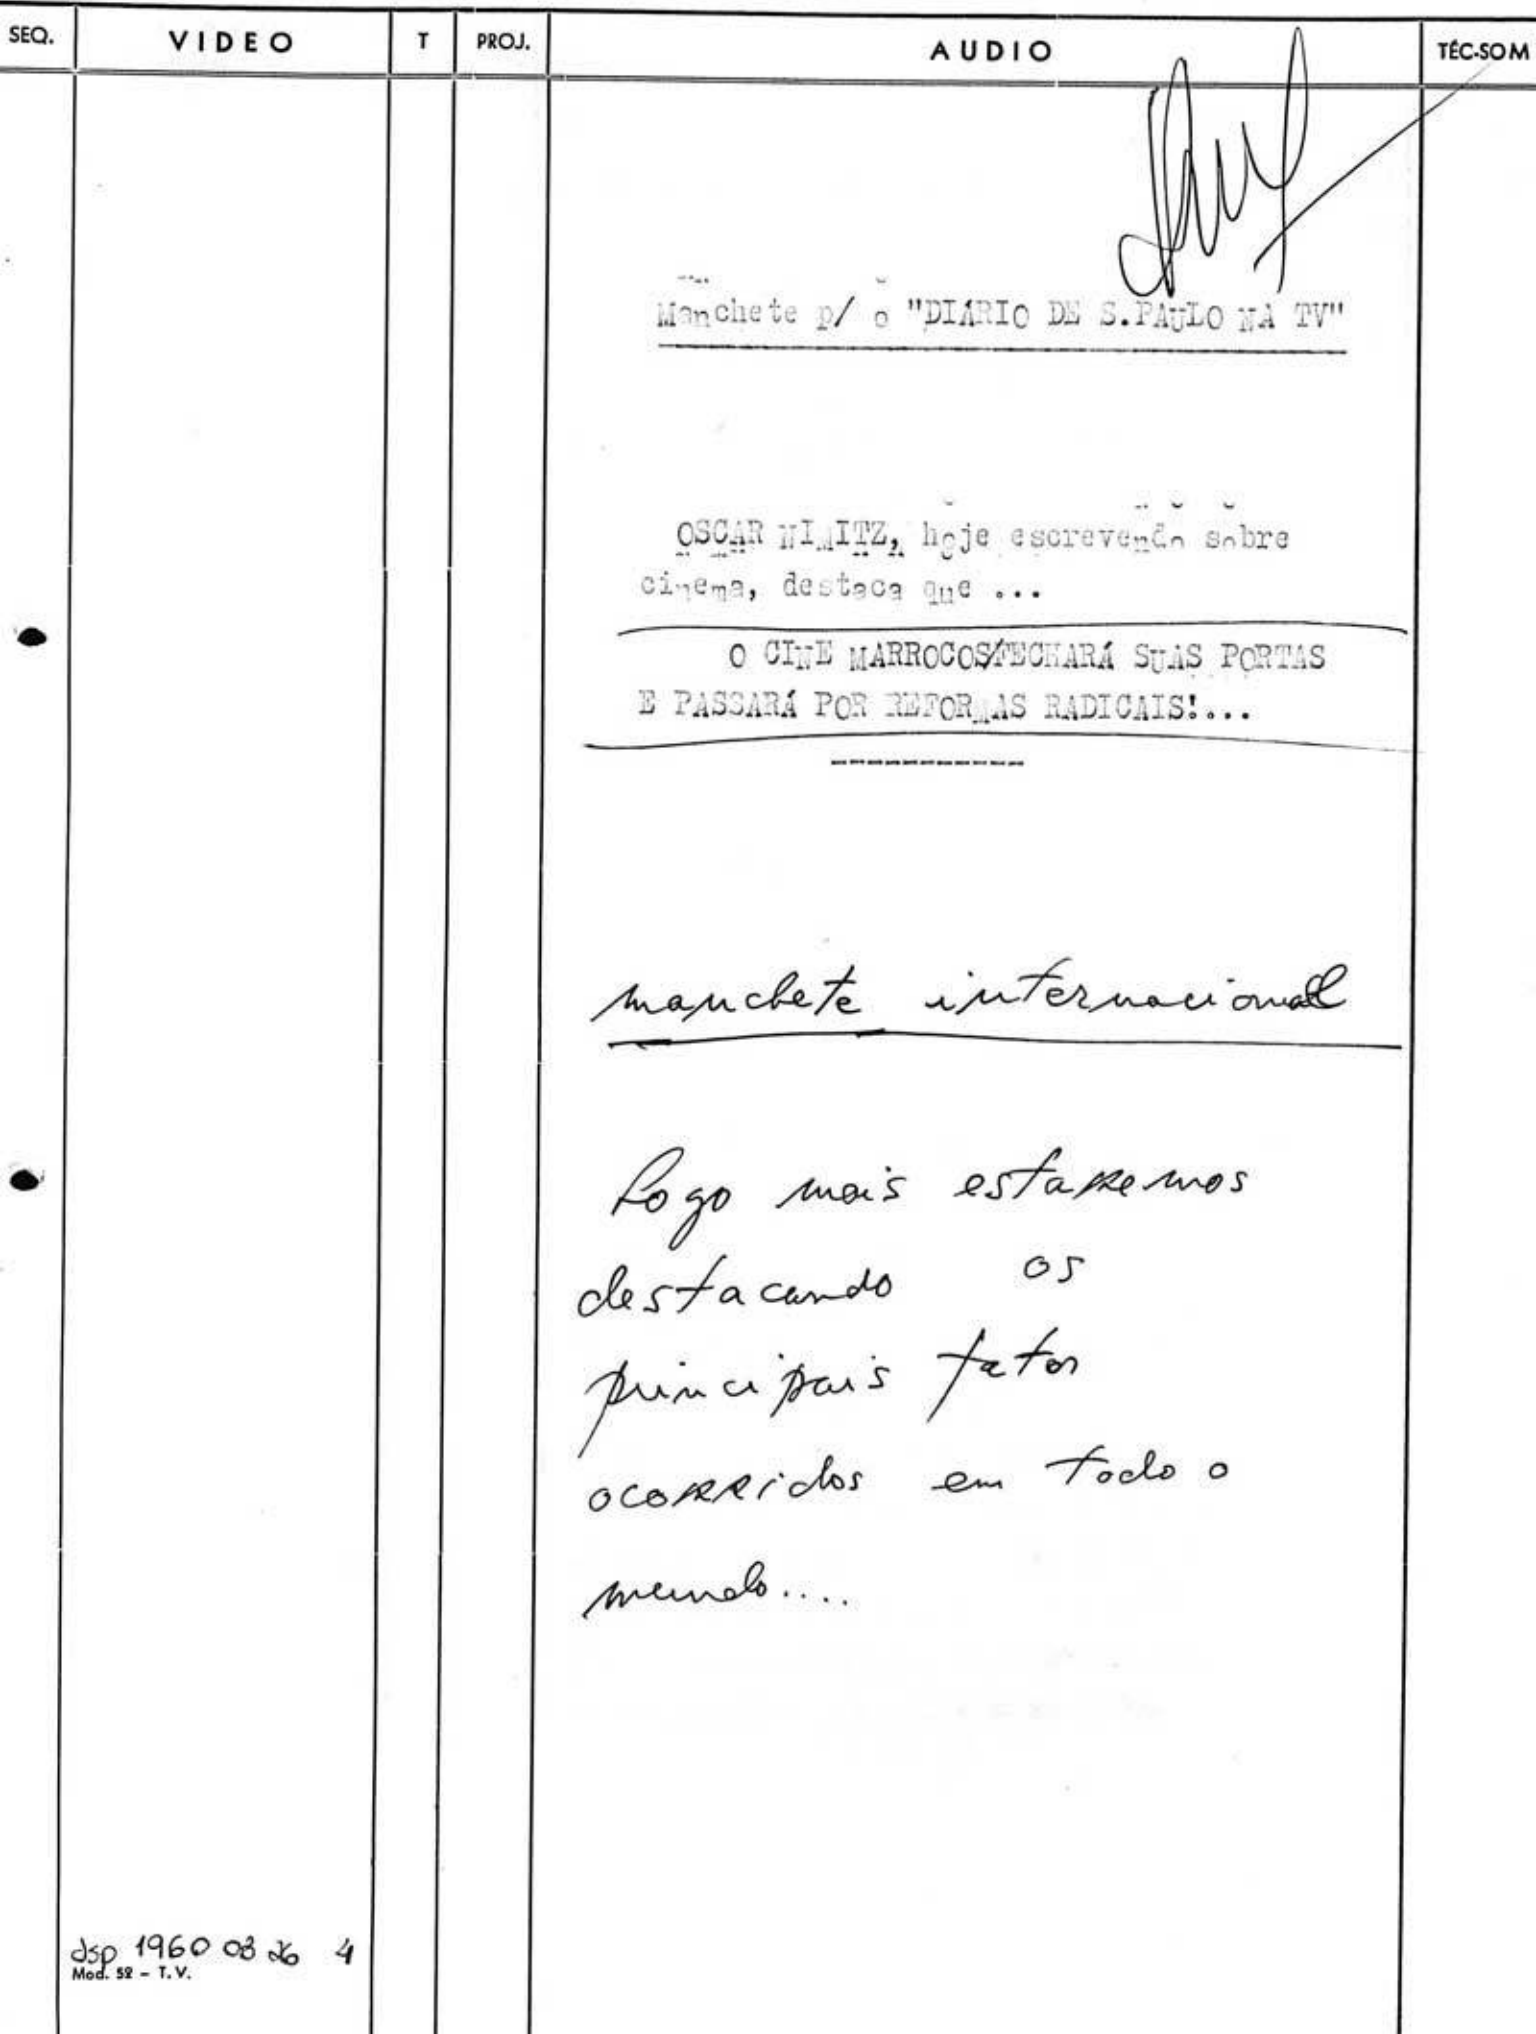 SEQ. VIDEO T PROJ. AUDIO TÉC-SOM
Manchete p/ o "DIÁRIO DE S.PAULO NA TV"
OSCAR NIMITZ, hoje escrevendo sobre
cinema, destaca que ...
O CINE MARROCOS/FECHARÁ SUAS PORTAS
E PASSARÁ POR REFORMAS RADICAIS!...
-----------
manchete internacional
Logo mais estaremos
destacando os
principais fatos
ocorridos em todo o
mundo....
dsp 1960 08 26 4
Mod. 52 - T.V.